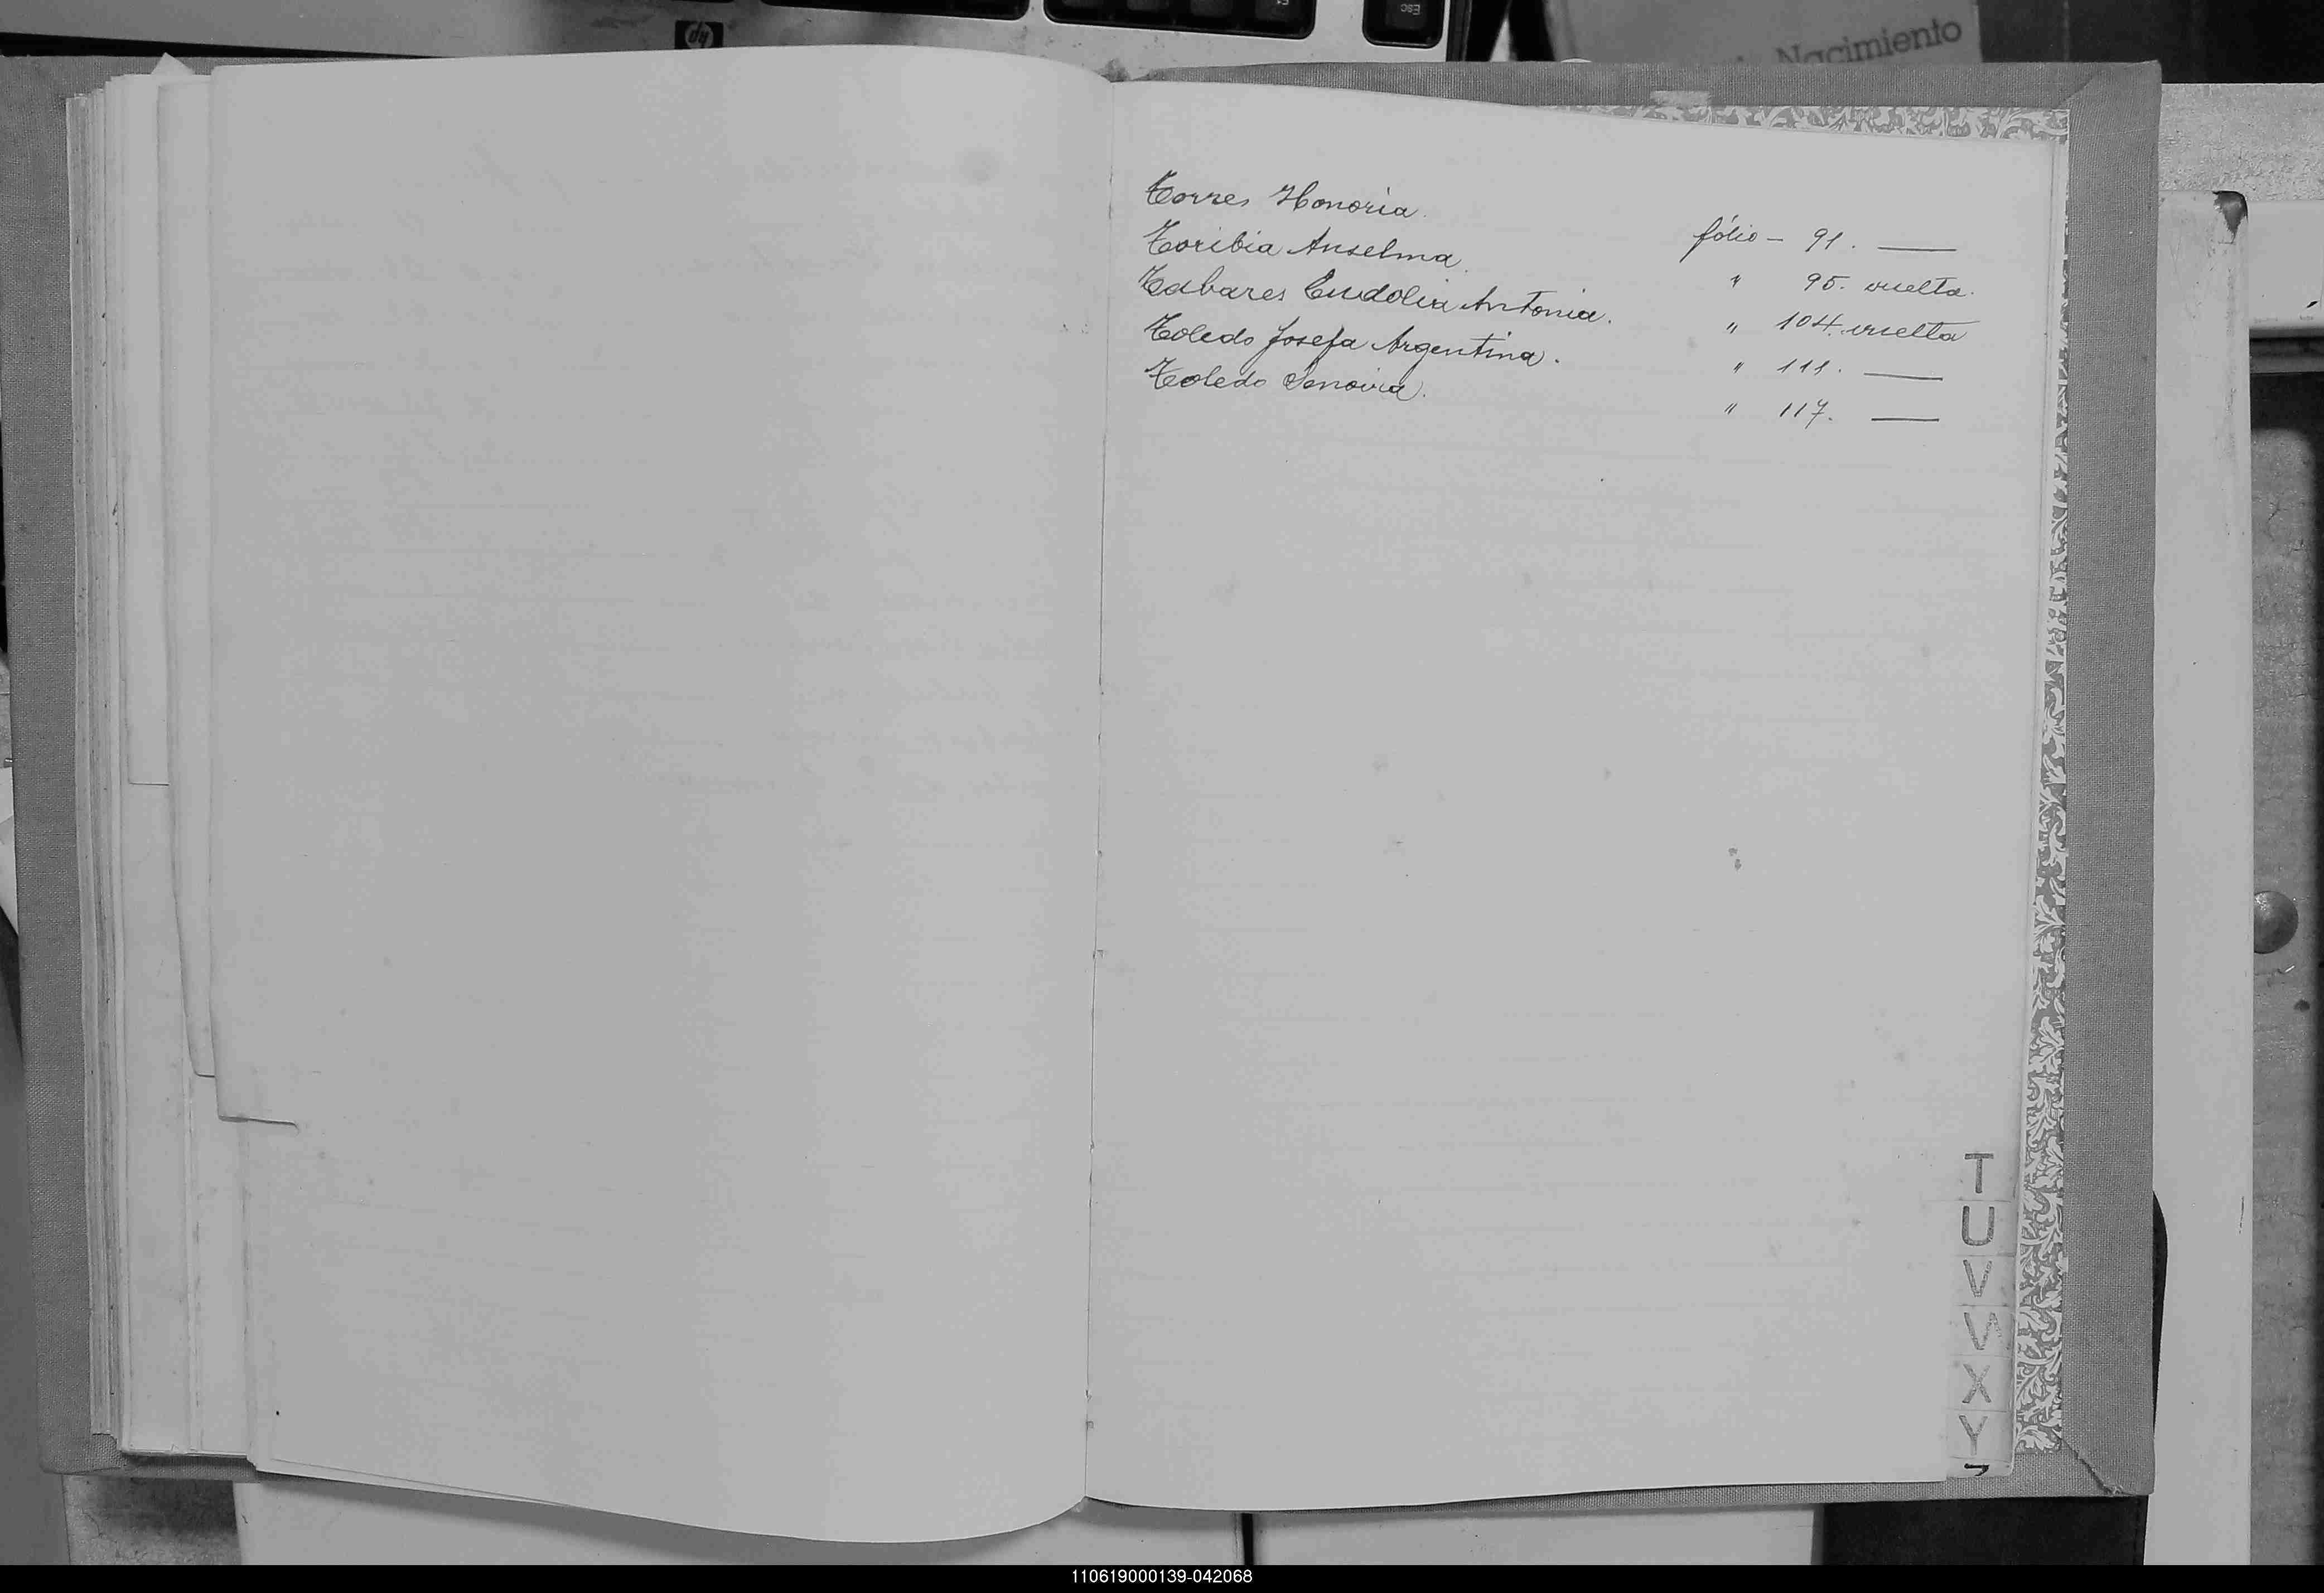 hp
Esc
Nacimiento
Torres Honoria. fólio - 91. ___
Toribia Anselma. " 95. vuelta.
Tabares Eudolia Antonia. " 104. vuelta
Toledo Josefa Argentina. " 111. ___
Toledo Senovia. " 117. ___
T
U
V
W
X
Y
110619000139-042068